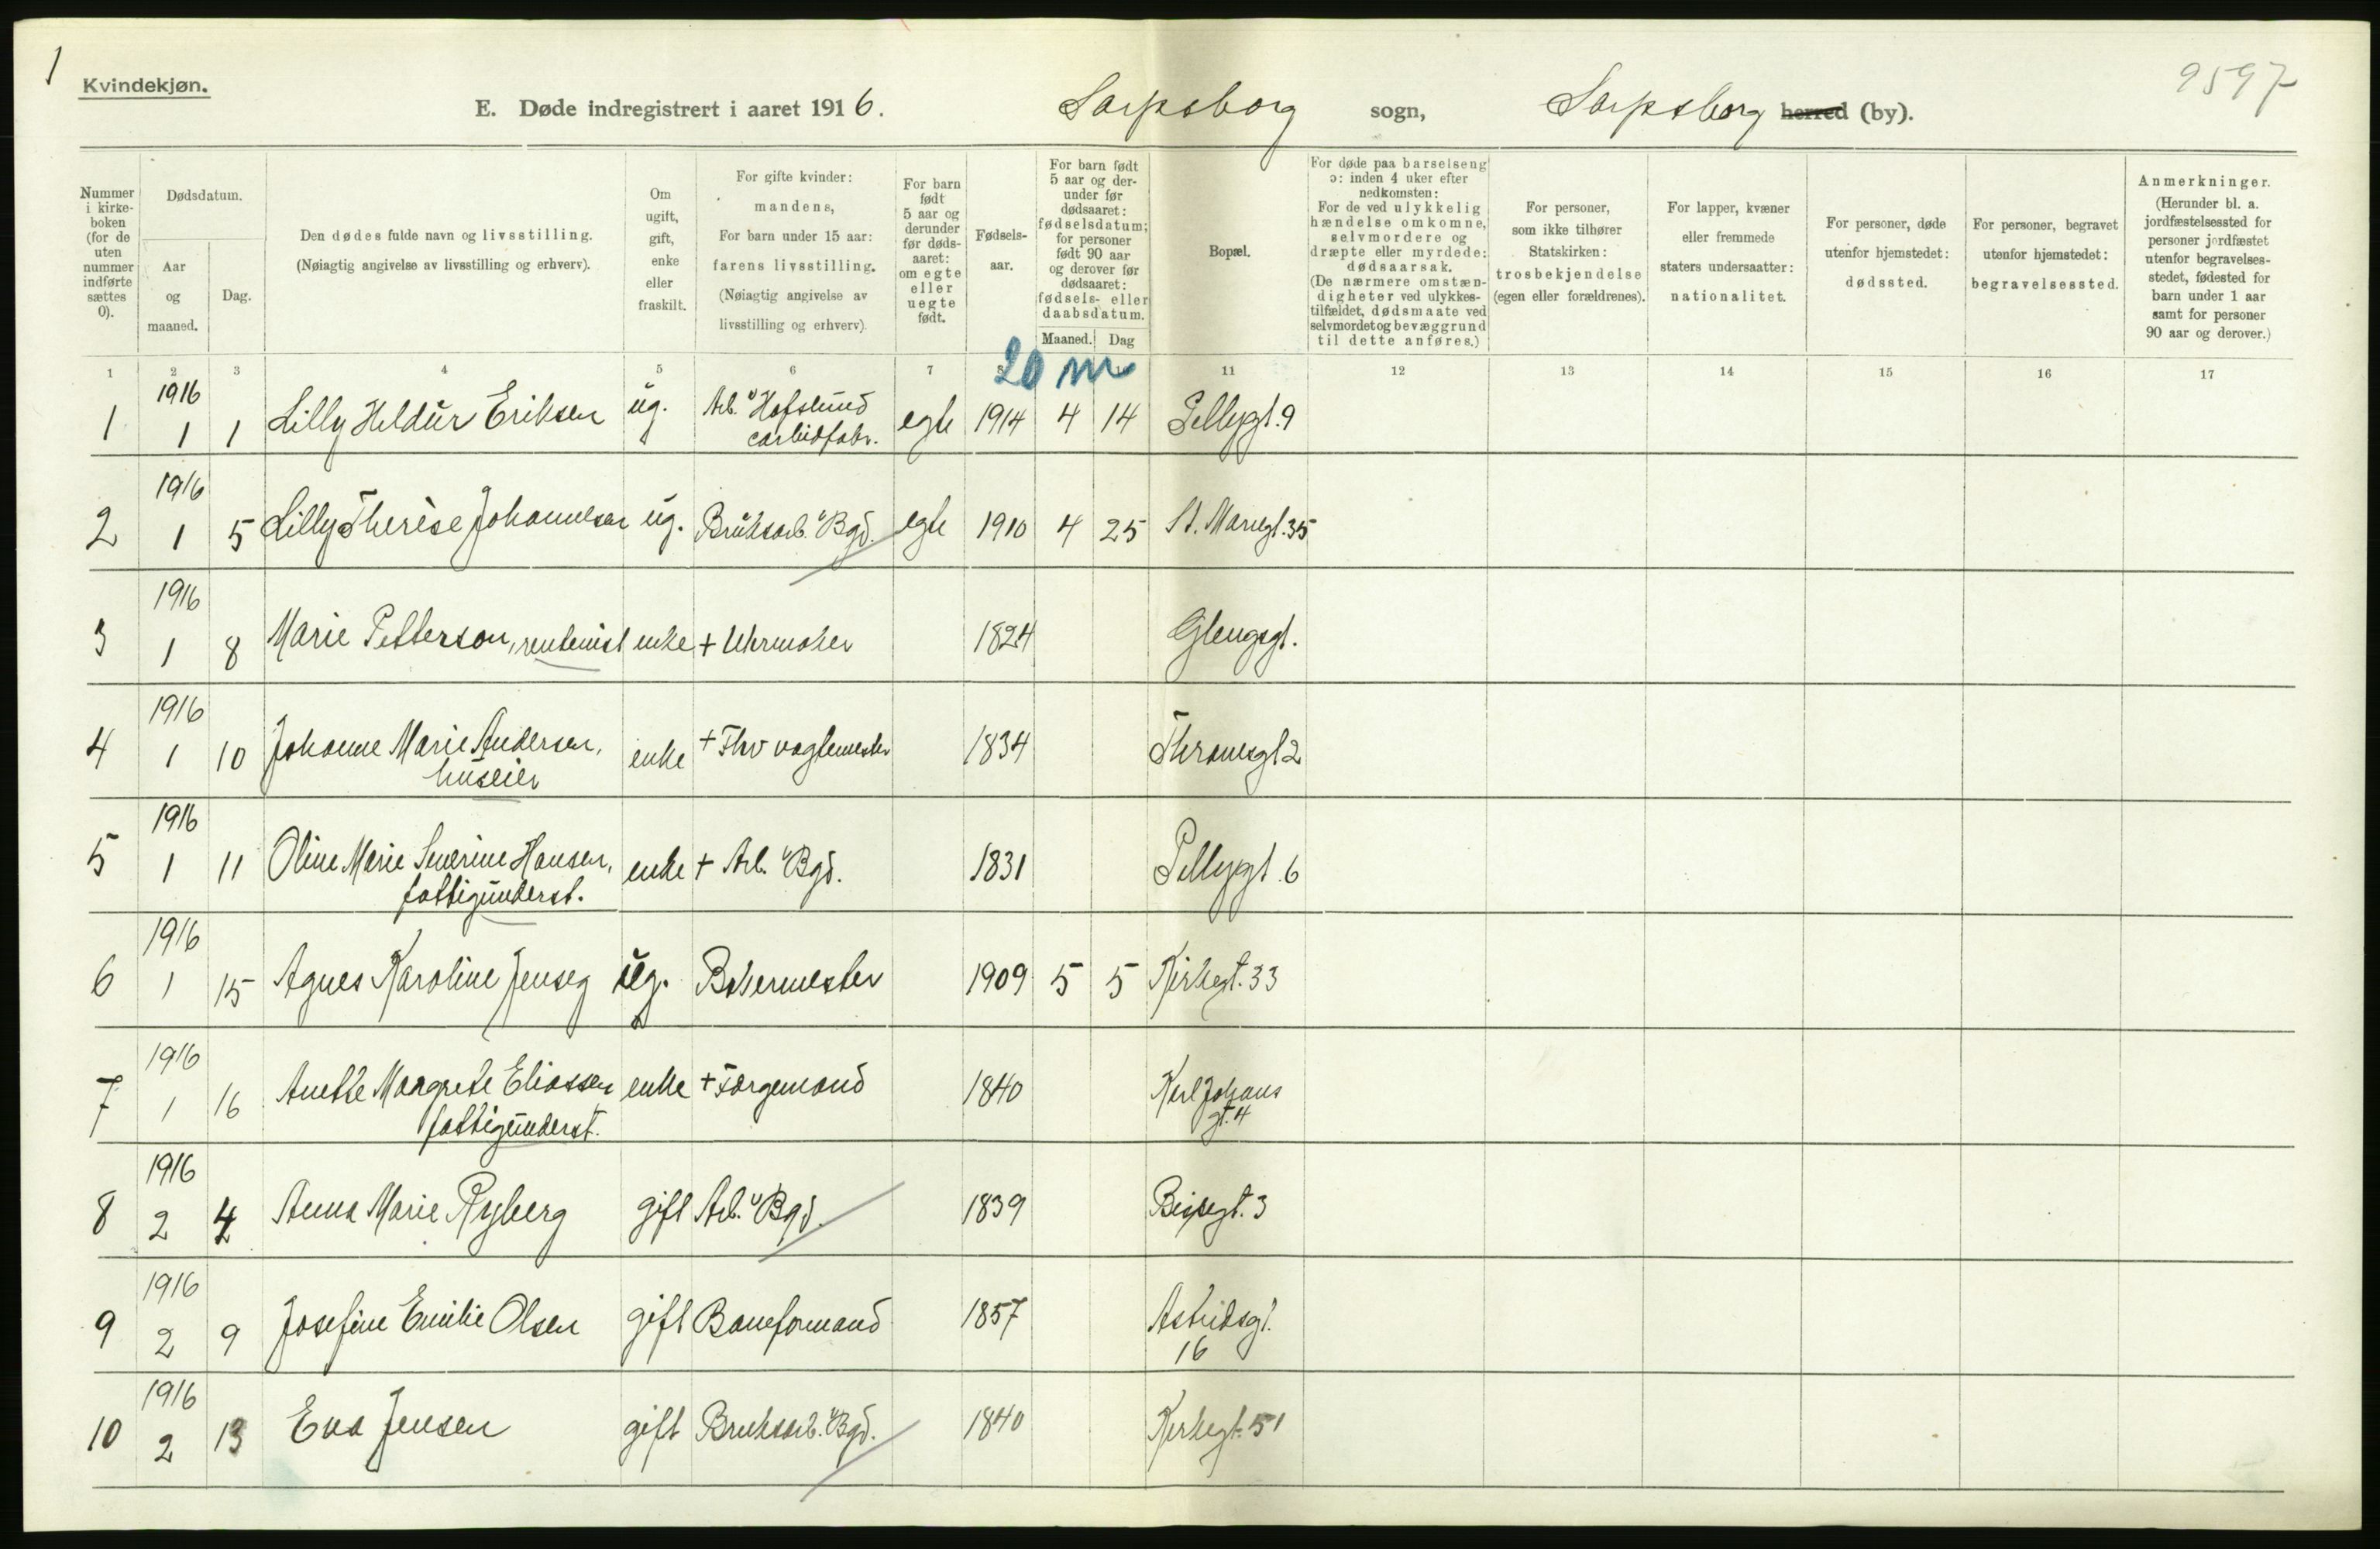 1
Kvindekjøn.
9597
E. Døde indregistrert i aaret 1916. Sarpsborg sogn, Sarpsborg herred (by).
Nummer i kirke-boken (for de uten nummer indførte sættes 0).
Dødsdatum.
Aar og maaned.
Dag.
Den dødes fulde navn og livsstilling.
(Nøiagtig angivelse av livsstilling og erhverv).
Om ugift, gift, enke eller fraskilt.
For gifte kvinder: mandens,
For barn under 15 aar: farens livsstilling.
(Nøiagtig angivelse av livsstilling og erhverv).
For barn født 5 aar og derunder før døds-aaret: om egte eller uegte født.
Fødsels-aar.
For barn født 5 aar og der-under før dødsaaret: fødselsdatum; for personer født 90 aar og derover før dødsaaret: fødsels- eller daabsdatum.
Maaned. Dag
Bopæl.
For døde paa barselseng ɔ: inden 4 uker efter nedkomsten:
For de ved ulykkelig hændelse omkomne, selvmordere og dræpte eller myrdede: dødsaarsak.
(De nærmere omstæn-digheter ved ulykkes-tilfældet, dødsmaate ved selvmord et og bevæggrund til dette anføres.)
For personer, som ikke tilhører Statskirken: trosbekjendelse (egen eller forældrenes).
For lapper, kvæner eller fremmede staters undersaatter: nationalitet.
For personer, døde utenfor hjemstedet: dødssted.
For personer, begravet utenfor hjemstedet: begravelsessted.
Anmerkninger.
(Herunder bl. a. jordfæstelsessted for personer jordfæstet utenfor begravelses-stedet, fødested for barn under 1 aar samt for personer 90 aar og derover.)
1 2 3 4 5 6 7 8 11 12 13 14 15 16 17
20 m
1 1916 1 1 Lilly Heldur Eriksen ug. Arb. v Hafslund carbidfabr. egte 1914 4 14 Pellygt. 9
2 1916 1 5 Lilly Therèse Johannesen ug. Bruksarb. v Bgd. egte 1910 4 25 St. Mariegt. 35
3 1916 1 8 Marie Petterson, rentenist enke + Uhrmaker 1824 Glengsgt.
4 1916 1 10 Johanne Marie Andersen, huseier enke + Fhv vagtmester 1834 Thranesgt 2
5 1916 1 11 Oline Marie Severine Hansen, fattigunderst. enke + Arb. v Bgd. 1831 Pellygt. 6
6 1916 1 15 Agnes Karoline Jenseg ug. Bakermester 1909 5 5 Kirkegt. 33
7 1916 1 16 Anette Margrete Eliassen fattigunderst. enke + Færgemand 1840 Karl Johans gt. 4
8 1916 2 4 Anna Marie Ryberg gift Arb. v Bgd. 1839 Bispegt. 3
9 1916 2 9 Josefine Emilie Olsen gift Baneformand 1857 Astridsgt. 16
10 1916 2 13 Eva Jensen gift Bruksarb. v Bgd. 1840 Kirkegt. 51